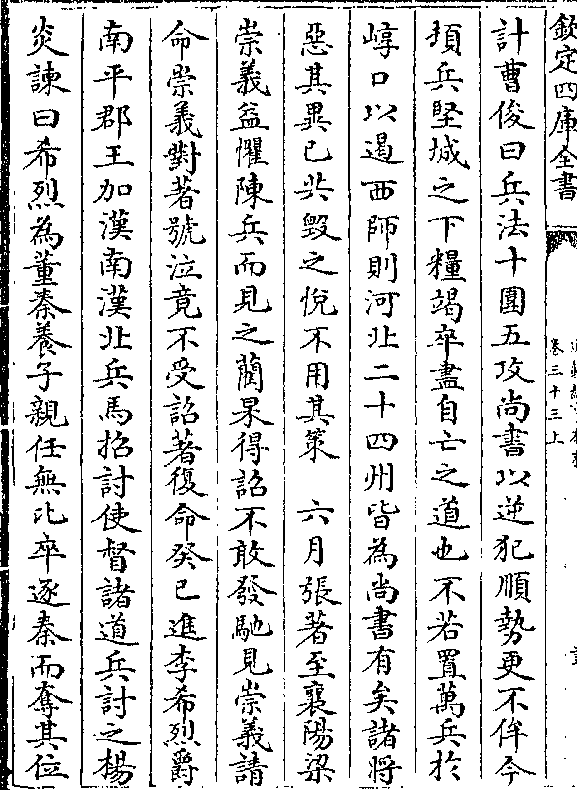 欽定四庫全書
卷三十三上
計曹俊曰兵法十圍五攻尚書以逆犯順勢更不侔今
頓兵堅城之下糧竭卒盡自亡之道也不若置萬兵於
崞口以遏西師則河北二十四州皆為尚書有矣諸將
惡其異已共毀之悅不用其策　六月張著至襄陽梁
崇義益懼陳兵而見之藺杲得詔不敢發馳見崇義請
命崇義對著號泣竟不受詔著復命癸巳進李希烈爵
南平郡王加漢南漢北兵馬招討使督諸道兵討之楊
炎諫曰希烈為董秦養子親任無比卒逐秦而奪其位